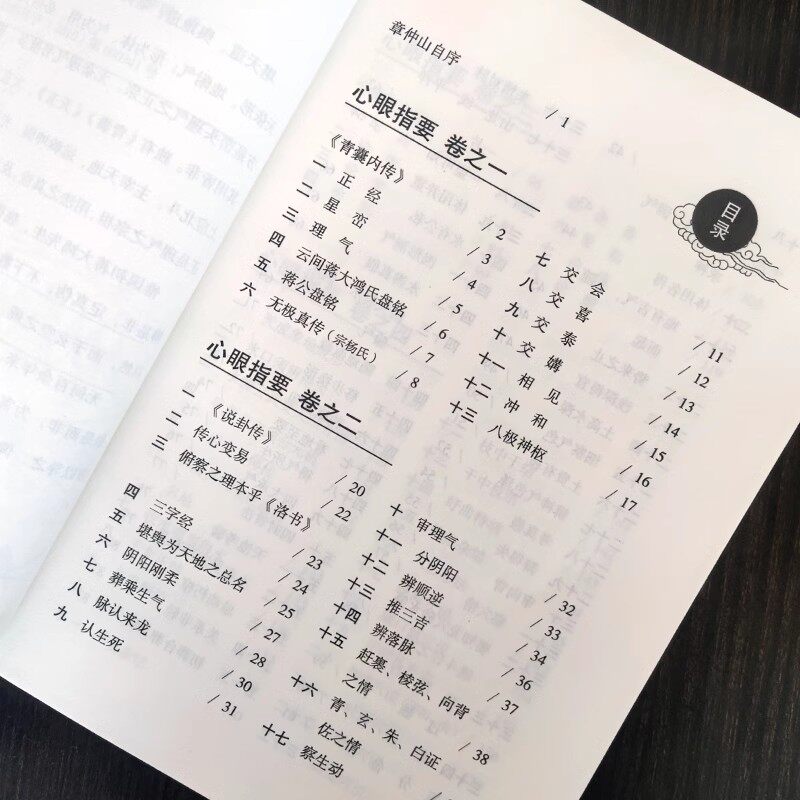 章仲山自序 / 1
心眼指要 卷之一
《青囊内传》 / 2
一 正经 / 3
二 星峦 / 4
三 理气 / 5
四 云间蒋大鸿氏盘铭 / 6
五 蒋公盘铭 / 7
六 无极真传（宗杨氏） / 8
七 交会 / 11
八 交喜 / 12
九 交泰 / 13
十 交媾 / 14
十一 相见 / 15
十二 冲和 / 16
十三 八极神枢 / 17
心眼指要 卷之二
一 《说卦传》 / 20
二 传心变易 / 22
三 俯察之理本乎《洛书》
/ 23
四 三字经 / 24
五 堪舆为天地之总名 / 25
六 阴阳刚柔 / 27
七 葬乘生气 / 28
八 脉认来龙 / 30
九 认生死 / 31
十 审理气 / 32
十一 分阴阳 / 33
十二 辨顺逆 / 34
十三 推三吉 / 36
十四 辨落脉 / 37
十五 赶裹、棱弦、向背
之情 / 38
十六 青、玄、朱、白证
佐之情
十七 察生动
目录